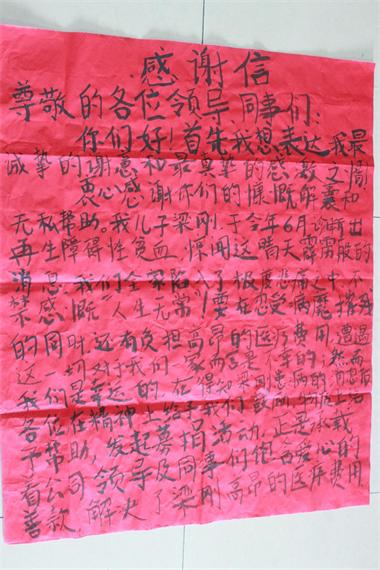 感谢信
尊敬的各位领导同事们:
你们好!首先我想表达我最
诚挚的谢意和最真挚的感激之情
衷心感谢你们的慷慨解囊和
无私帮助。我儿子梁刚于今年6月诊断出
再生障碍性贫血惊闻这晴天霹雳般的
消息,我们全家陷入了极度悲痛之中,不
禁感慨人生无常!要在忍受病魔
的同时还有负担高昂的医疗费用,遭遇
这一切对我们家而言是不幸的,然而
我们是幸运的,在得知梁刚的病情
各位在精神上给我们鼓励
予帮助,发起募捐活动,正是
看公司领导及同事们饱含爱心的
善款,解决了梁刚高昂的医疗费用